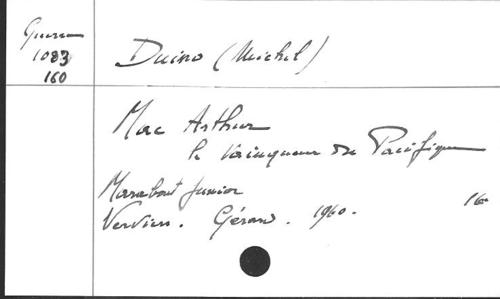 Guerre
1083
160
Duino (Michel)
Mac Arthur
le vainqueur du Pacifique
Marabout Junior
Verviers. Gérard. 1960. 16°